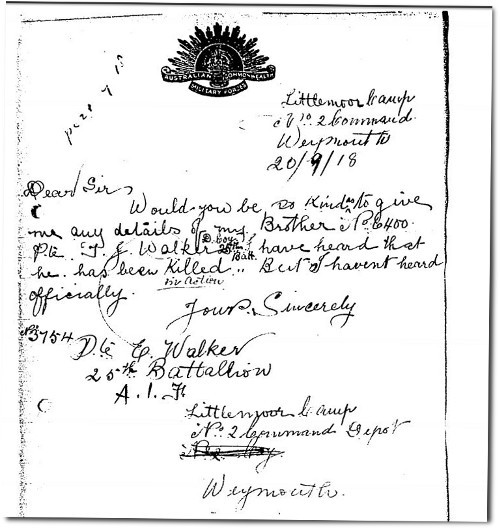 AUSTRALIAN COMMONWEALTH
MILITARY FORCES
Littlemoor Camp
No. 2 Command
Weymouth
20/9/18
Dear Sir
Would you be so kind as to give
me any details of my Brother No 6400
Pte. T. J. Walker D. Coy 25th Batt. I have heard that
he has been killed in Action.. But I havent heard
officially.
Yours Sincerely
No 3754
Pte E. Walker
25th Battallion
A. I. F
Littlemoor Camp
No. 2 Command Depot
Weymouth.